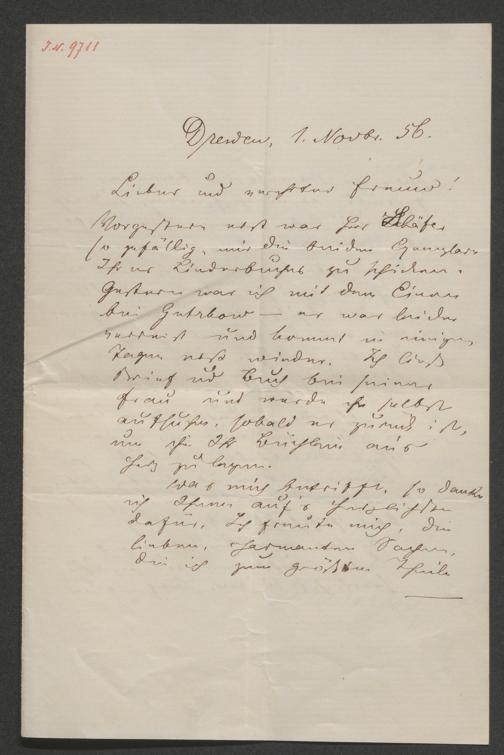 I.N. 9711
Dresden, 1. Novbr. 56.
Lieber und verehrter Freund!
Vorgestern erst war Herr Schäfer
so gefällig, mir die beiden Exemplare
Ihres Kinderbuches zu schicken.
Gestern war ich mit dem Einen
bei Gutzkow — er war leider
verreist und kommt in einigen
Tagen erst wieder. Ich ließ
Brief und Buch bei seiner
Frau und werde ihn selbst
aufsuchen, sobald er zurück ist,
um ihm Ihr Büchlein an's
Herz zu legen.
Was mich betrifft, so danke
ich Ihnen auf's herzlichste
dafür. Ich freute mich, die
lieben, charmanten Sachen,
die ich zum größten Theile